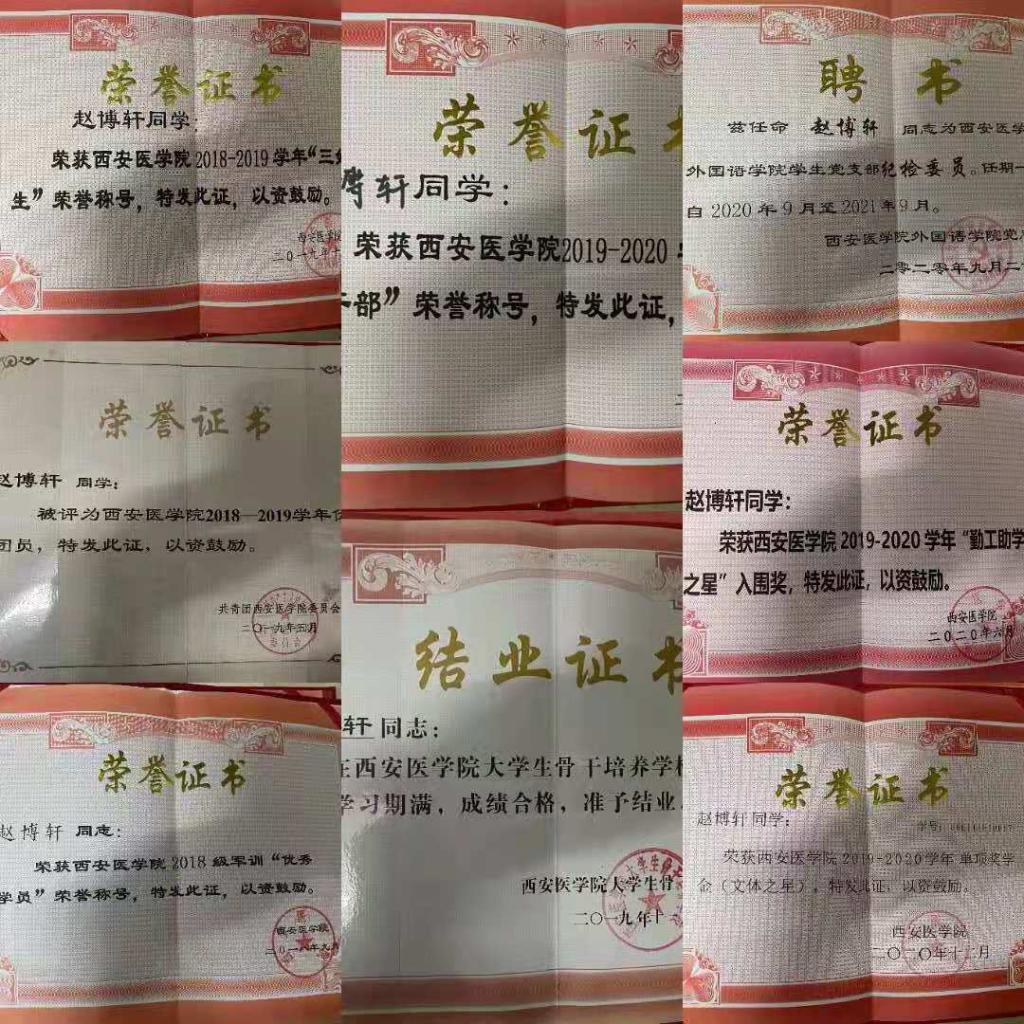 荣誉证书
赵博轩同学:
荣获西安医学院2018-2019学年“三
生”荣誉称号，特发此证，以资鼓励。
西安医学
二〇一九年十
荣誉证书
赵博轩 同学:
被评为西安医学院2018—2019学年
团员，特发此证，以资鼓励。
共青团西安医学院委员会
二〇一九年五月
荣誉证书
赵博轩 同志:
荣获西安医学院2018级军训“优秀
学员”荣誉称号，特发此证，以资鼓励。
西安医学院
二〇一八年九月
荣誉证书
博轩同学:
荣获西安医学院2019-2020
部”荣誉称号，特发此证，
结业证书
轩 同志:
在西安医学院大学生骨干培养学校
学习期满，成绩合格，准予结业
西安医学院大学生骨
二〇一九年十一
聘书
兹任命 赵博轩 同志为西安医学
外国语学院学生党支部纪检委员。任期一
自2020年9月至2021年9月。
西安医学院外国语学院党
二零二零年九月二
荣誉证书
赵博轩同学:
荣获西安医学院2019-2020学年“勤工助学
之星”入围奖，特发此证，以资鼓励。
西安医学院
二〇二〇年六月
荣誉证书
赵博轩同学:
学号:
荣获西安医学院2019-2020学年单项奖学
金（文体之星），特发此证，以资鼓励。
西安医学院
二〇二〇年十二月